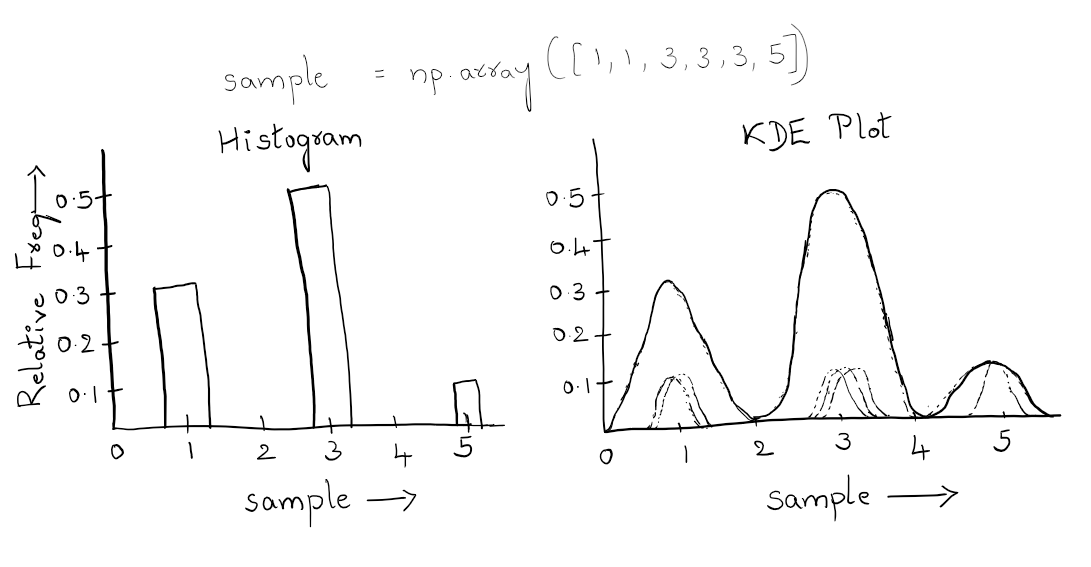 sample = np.array ([1,1,3,3,3,5])
Histogram
Relative Freq →
0.5
0.4
0.3
0.2
0.1
0 1 2 3 4 5
sample →
KDE Plot
0.5
0.4
0.3
0.2
0.1
0 1 2 3 4 5
sample →